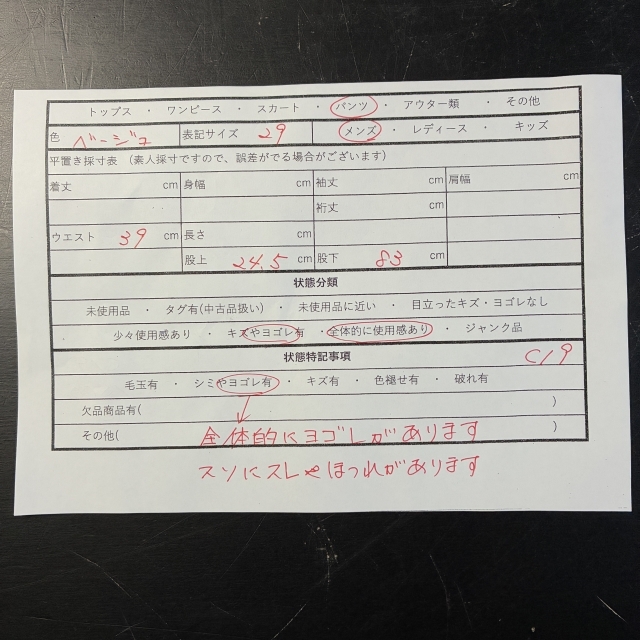 トップス ・ ワンピース ・ スカート ・ パンツ ・ アウター類 ・ その他
色 ベージュ 表記サイズ 29 メンズ ・ レディース ・ キッズ
平置き採寸表 （素人採寸ですので、誤差がでる場合がございます）
着丈 cm 身幅 cm 袖丈 cm 肩幅 cm
裄丈 cm
ウエスト 39 cm 長さ cm
股上 24.5 cm 股下 83 cm
状態分類
未使用品 ・ タグ有(中古品扱い) ・ 未使用に近い ・ 目立ったキズ・ヨゴレなし
少々使用感あり ・ キズやヨゴレ有 ・ 全体的に使用感あり ・ ジャンク品
状態特記事項 C19
毛玉有 ・ シミやヨゴレ有 ・ キズ有 ・ 色褪せ有 ・ 破れ有
欠品商品有( )
その他( 全体的にヨゴレがあります )
スソにスレやほつれがあります